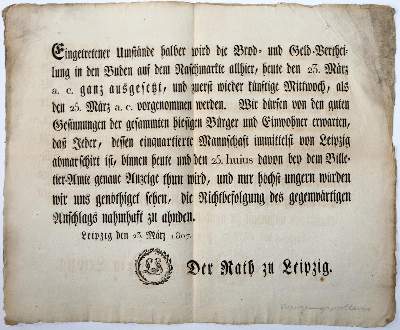 Eingetretener Umstände halber wird die Brod- und Geld-Verthei-
lung in den Buden auf dem Naschmarkte allhier, heute den 23. März
a. c. ganz ausgesetzt, und zuerst wieder künftige Mittwoch, als
den 25. März a. c. vorgenommen werden. Wir dürfen von den guten
Gesinnungen der gesammten hiesigen Bürger und Einwohner erwarten,
daß Jeder, dessen einquartierte Mannschaft immittelst von Leipzig
abmarschirt ist, binnen heute und den 25. huius davon bey dem Bille-
tier-Amte genaue Anzeige thun wird, und nur höchst ungern würden
wir uns genöthiget sehen, die Nichtbefolgung des gegenwärtigen
Anschlags nahmhaft zu ahnden.
Leipzig den 23. März 1807.
Der Rath zu Leipzig.